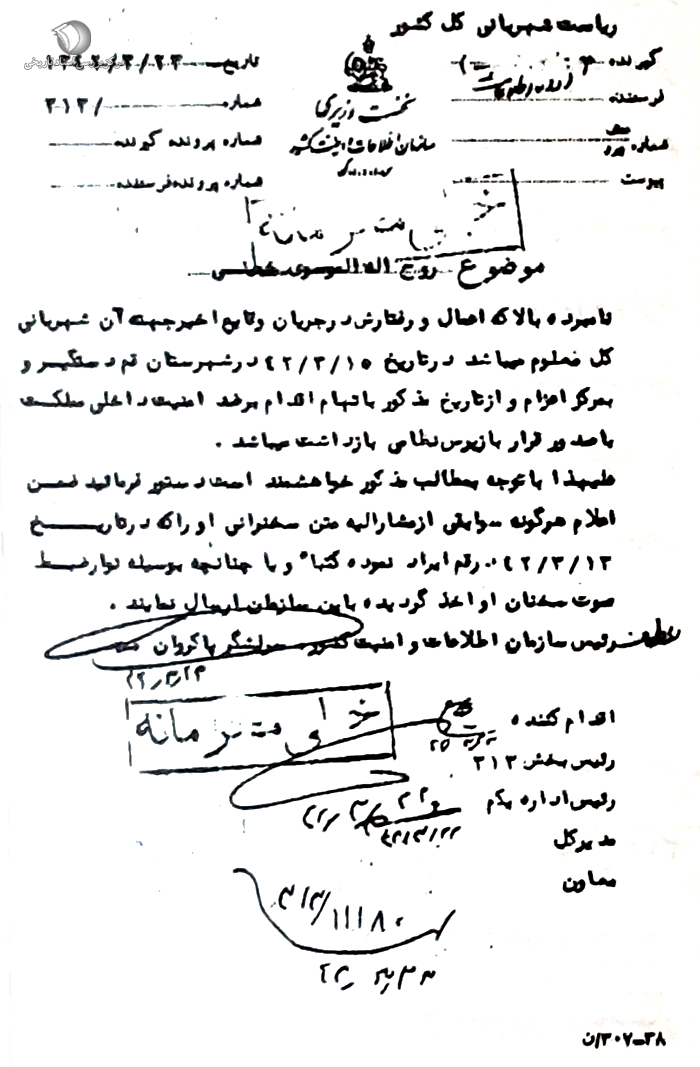 مرکز بررسی اسناد تاریخی
ریاست شهربانی کل کشور
گیرنده
فرستنده
شماره
پیوست
نخست وزیری
سازمان اطلاعات و امنیت کشور
س.ا.و.ا.ک
تاریخ ۱۳۴۲/۳/۲۳
شماره /۳۱۲
شماره پرونده گیرنده
شماره پرونده فرستنده
خیلی محرمانه
موضوع روح اله الموسوی خمینی
نامبرده بالا که اعمال و رفتارش در جریان وقایع اخیر جهت آن شهربانی
کل معلوم میباشد در تاریخ ۴۲/۳/۱۵ در شهرستان قم دستگیر و
بمرکز اعزام و از تاریخ مذکور باتهام اقدام بر ضد امنیت داخلی مملکت
با صدور قرار بازپرس نظامی بازداشت میباشد .
علیهذا با توجه بمطالب مذکور خواهشمند است دستور فرمائید ضمن
اعلام هرگونه سوابقی از مشارالیه متن سخنرانی او را که در تاریـــخ
۴۲/۳/۱۳ در قم ایراد نموده کتباً و یا چنانچه بوسیله نوار ضبط
صوت سخنان او اخذ گردیده باین سازمان ارسال نمایند .
رئیس سازمان اطلاعات و امنیت کشور . سرلشگر پاکروان
۴۲/۳/۲۳
خیلی محرمانه
اقدام کننده
رئیس بخش ۳۱۲
رئیس اداره یکم
۴۲/۳/۲۲
مدیرکل
معاون
۳۱۲/۱۱۱۸۰
۴۲/۳/۲۳
۳۸-۳۰۷/ن